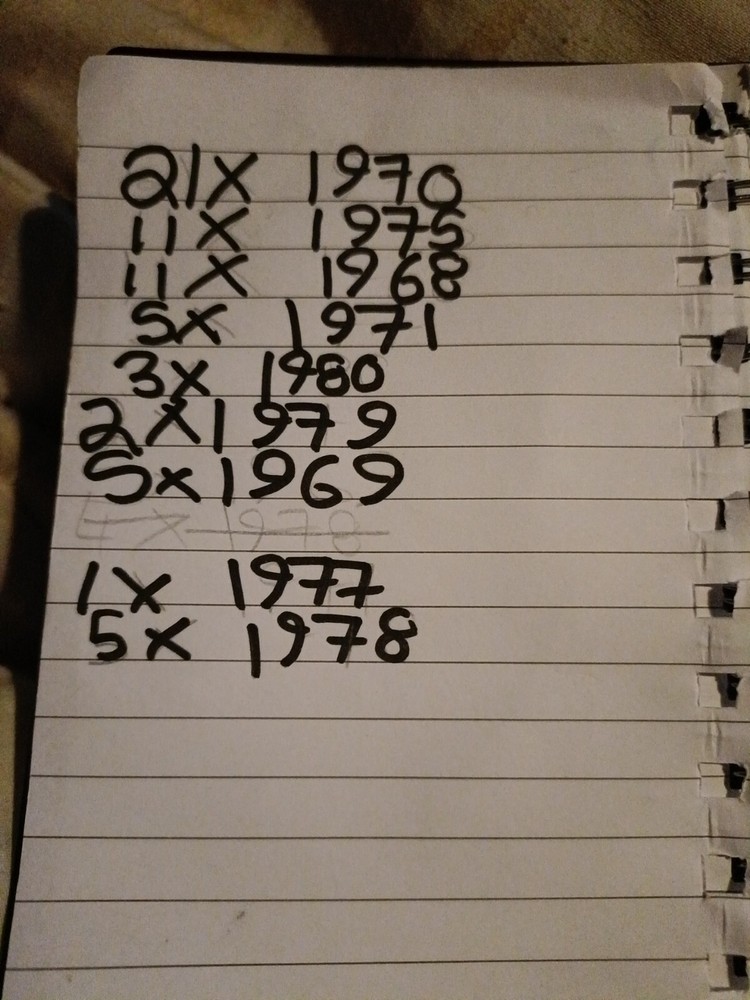 21x 1970
11x 1975
11x 1968
5x 1971
3x 1980
2x1979
5x1969
4x 1978
1x 1977
5x 1978